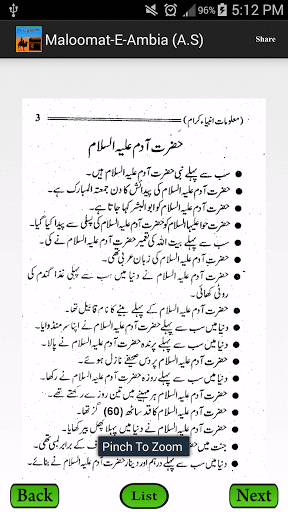 96% 5:12 PM
Maloomat-E-Ambia (A.S)
Share
3 (معلومات انبیاء کرام)
حضرت آدم علیہ السلام
● سب سے پہلے نبی حضرت آدم علیہ السلام ہیں۔
● حضرت آدم علیہ السلام کی پیدائش کا دن جمعتہ المبارک ہے۔
● حضرت آدم علیہ السلام کو ابو البشر کہا جاتا ہے۔
● حضرت حوا علیہا السلام کو حضرت آدم علیہ السلام کی پسلی سے پیدا کیا گیا۔
● سب سے پہلے بیت اللہ کی تعمیر حضرت آدم علیہ السلام نے کی۔
● حضرت آدم علیہ السلام کی زبان عربی تھی۔
● حضرت آدم علیہ السلام نے دنیا میں سب سے پہلی غذا گندم کی
روٹی کھائی۔
● حضرت آدم علیہ السلام کے پہلے بیٹے کا نام قابیل تھا۔
● دنیا میں سب سے پہلے حضرت آدم علیہ السلام نے اپنا سر منڈوایا۔
● دنیا میں سب سے پہلے پرندہ حضرت آدم علیہ السلام نے پالا۔
● حضرت آدم علیہ السلام پر دس صحیفے نازل ہوئے۔
● دنیا میں سب سے پہلے روزہ حضرت آدم علیہ السلام نے رکھا۔
● حضرت آدم علیہ السلام ہر مہینے میں تین روزے رکھتے تھے۔
● حضرت آدم علیہ السلام کا قد ساٹھ (60) گز تھا۔
● حضرت آدم علیہ السلام نے دنیا میں پہلا پھل بیر کھایا۔
● جنت میں حضرت کے برابر لمبی تھی۔
● دنیا میں سب سے پہلے درہم اور دینار حضرت آدم علیہ السلام نے بنائے۔
Pinch To Zoom
Back
List
Next